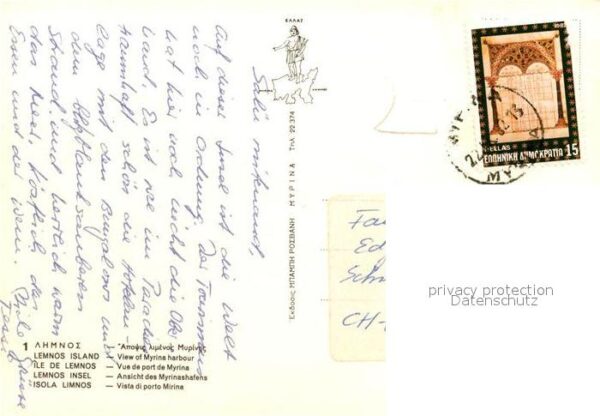 Salü mitenand,
Auf dieser Insel ist die Welt
noch in Ordnung. Der Tourismus
hat hier noch nicht die Ober-
hand. Es ist wie im Paradies
traumhaft schön die Hotelan-
lage mit den Bungalows und
dem Strand und herrlich warm
das Meer, köstlich das
Essen und der Wein.
Grüsse
ΕΛΛΑΣ
Εκδόσεις ΜΠΑΜΠΗ ΡΟΣΒΑΝΗ ΜΥΡΙΝΑ Τηλ. 22.374
HELLAS
ΕΛΛΗΝΙΚΗ ΔΗΜΟΚΡΑΤΙΑ 15
CH-
privacy protection
Datenschutz
1 ΛΗΜΝΟΣ — Άποψις λιμένος Μυρίνης
LEMNOS ISLAND — View of Myrina harbour
ÎLE DE LEMNOS — Vue de port de Myrina
LEMNOS INSEL — Ansicht des Myrinashafens
ISOLA LIMNOS — Vista di porto Mirina